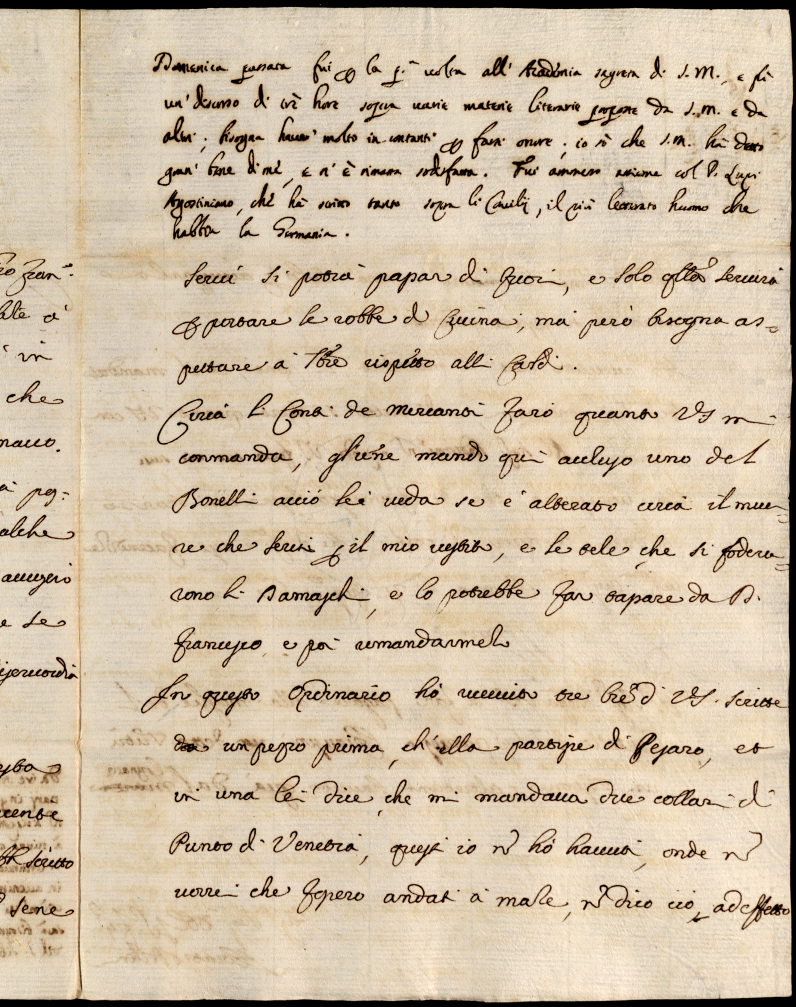 Domenica passata fui p la p.ª volta all' Academia segreta di S.M., e fù
un' discorso di trè hore sopra varie materie literarie proposte da S.M. e da
altri; bisogna haver' molto in contanti p farsi onore; io sò che S.M. hà detto
gran' bene di mè, e n' è rimasta sodisfatta. Fui ammesso assieme col P. Lupi
Agostiniano, che hà scritto tanto sopra li Concilij, il più letterato huomo che
habbia la Germania.
servi si potrà papar di fuori, e solo servirà
p portare le robbe di Cucina, mà però bisogna as=
pettare à rispetto alli Card.
Circa li Conti de mercanti farò quanto VS mi
commanda, gliene mando quì acclujo uno del
Bonelli acciò lei veda se è alterato circa il
re che servì p il mio vestito, e le tele che si fodera=
rono li Damaschi, e lo potrebbe far tapare da D.
Francesco, e poi rimandarmelo
In questo Ordinario hò ricevuto tre di VS. scritte
un pezzo prima, ch' ella partisse di Pesaro, et
in una lei dice, che mi mandava due collari di
Punto di Venetia, questi io nō hò havuti, onde nō
vorrei che fossero andati à male, nō dico ciò, ad effetto
ro Fran.
late à
in
che
naceo.
alche
e se
sericordia
cente
scritto
sene